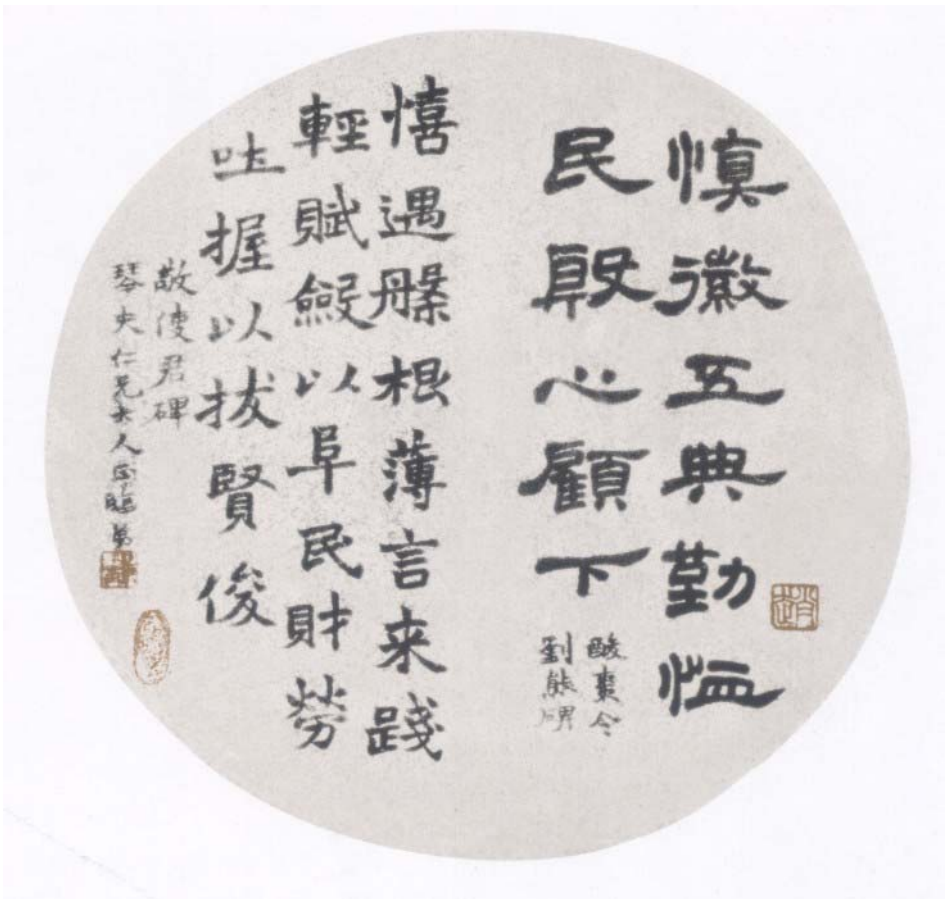 慎徽五典勤恤
民殷心顧下
酸棗令
劉熊碑
憘遇槃根薄言来踐
輕賦斂以阜民財勞
吐握以拔賢俊
敬使君碑
琴夫仁兄大人臨弟
趙